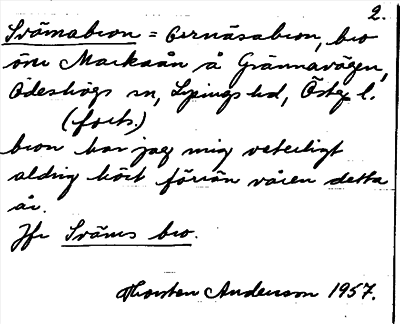 2.
Svämabron = Bernäsabron, bro
över Markaån å Grännavägen,
Ödeshögs sn, Lysings hd, Östg l.
(forts.)
bron har jag mig veterligt
aldrig hört förrän våren detta
år.
Jfr Sväms bro.
Thorsten Andersson 1957.